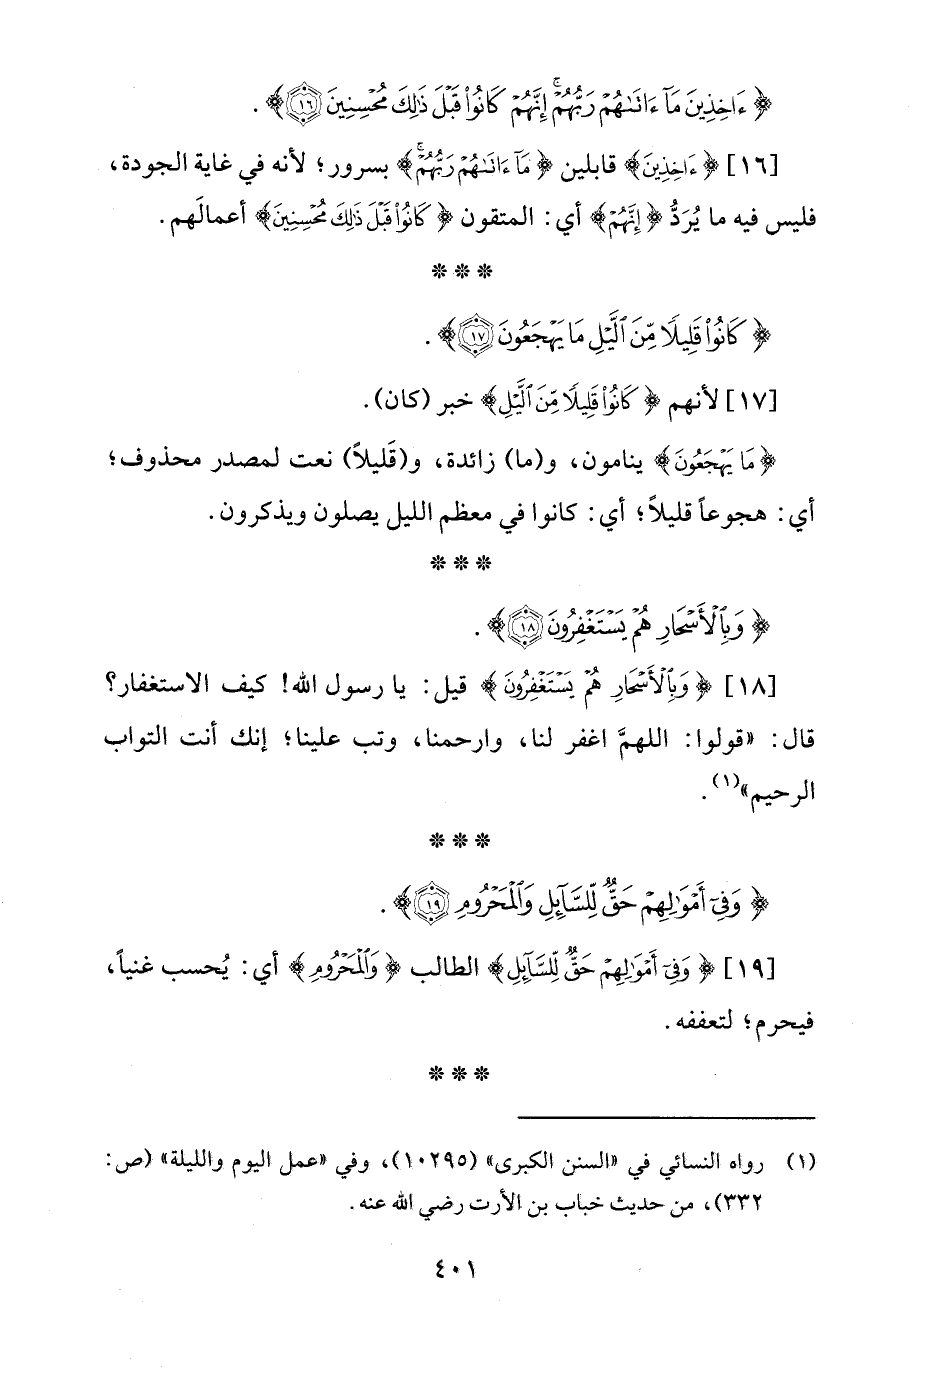 ﴿ ءَاخِذِينَ مَآ ءَاتَىٰهُمْ رَبُّهُمْ ۚ إِنَّهُمْ كَانُوا۟ قَبْلَ ذَٰلِكَ مُحْسِنِينَ ١٦ ﴾ .
[١٦] ﴿ ءَاخِذِينَ ﴾ قابلين ﴿ مَآ ءَاتَىٰهُمْ رَبُّهُمْ ۚ ﴾ بسرور؛ لأنه في غاية الجودة،
فليس فيه ما يُرَدُّ ﴿ إِنَّهُمْ ﴾ أي: المتقون ﴿ كَانُوا۟ قَبْلَ ذَٰلِكَ مُحْسِنِينَ ﴾ أعمالَهم.
* * *
﴿ كَانُوا۟ قَلِيلًا مِّنَ ٱلَّيْلِ مَا يَهْجَعُونَ ١٧ ﴾ .
[١٧] لأنهم ﴿ كَانُوا۟ قَلِيلًا مِّنَ ٱلَّيْلِ ﴾ خبر (كان).
﴿ مَا يَهْجَعُونَ ﴾ ينامون، و(ما) زائدة، و(قَليلاً) نعت لمصدر محذوف؛
أي: هجوعاً قليلاً؛ أي: كانوا في معظم الليل يصلون ويذكرون.
* * *
﴿ وَبِٱلْأَسْحَارِ هُمْ يَسْتَغْفِرُونَ ١٨ ﴾ .
[١٨] ﴿ وَبِٱلْأَسْحَارِ هُمْ يَسْتَغْفِرُونَ ﴾ قيل: يا رسول الله! كيف الاستغفار؟
قال: «قولوا: اللهمَّ اغفر لنا، وارحمنا، وتب علينا؛ إنك أنت التواب
الرحيم»(١).
* * *
﴿ وَفِىٓ أَمْوَٰلِهِمْ حَقٌّ لِّلسَّآئِلِ وَٱلْمَحْرُومِ ١٩ ﴾ .
[١٩] ﴿ وَفِىٓ أَمْوَٰلِهِمْ حَقٌّ لِّلسَّآئِلِ ﴾ الطالب ﴿ وَٱلْمَحْرُومِ ﴾ أي: يُحسب غنياً،
فيحرم؛ لتعففه.
* * *
(١) رواه النسائي في «السنن الكبرى» (١٠٢٩٥)، وفي «عمل اليوم والليلة» (ص:
٣٣٢)، من حديث خباب بن الأرت رضي الله عنه.
٤٠١